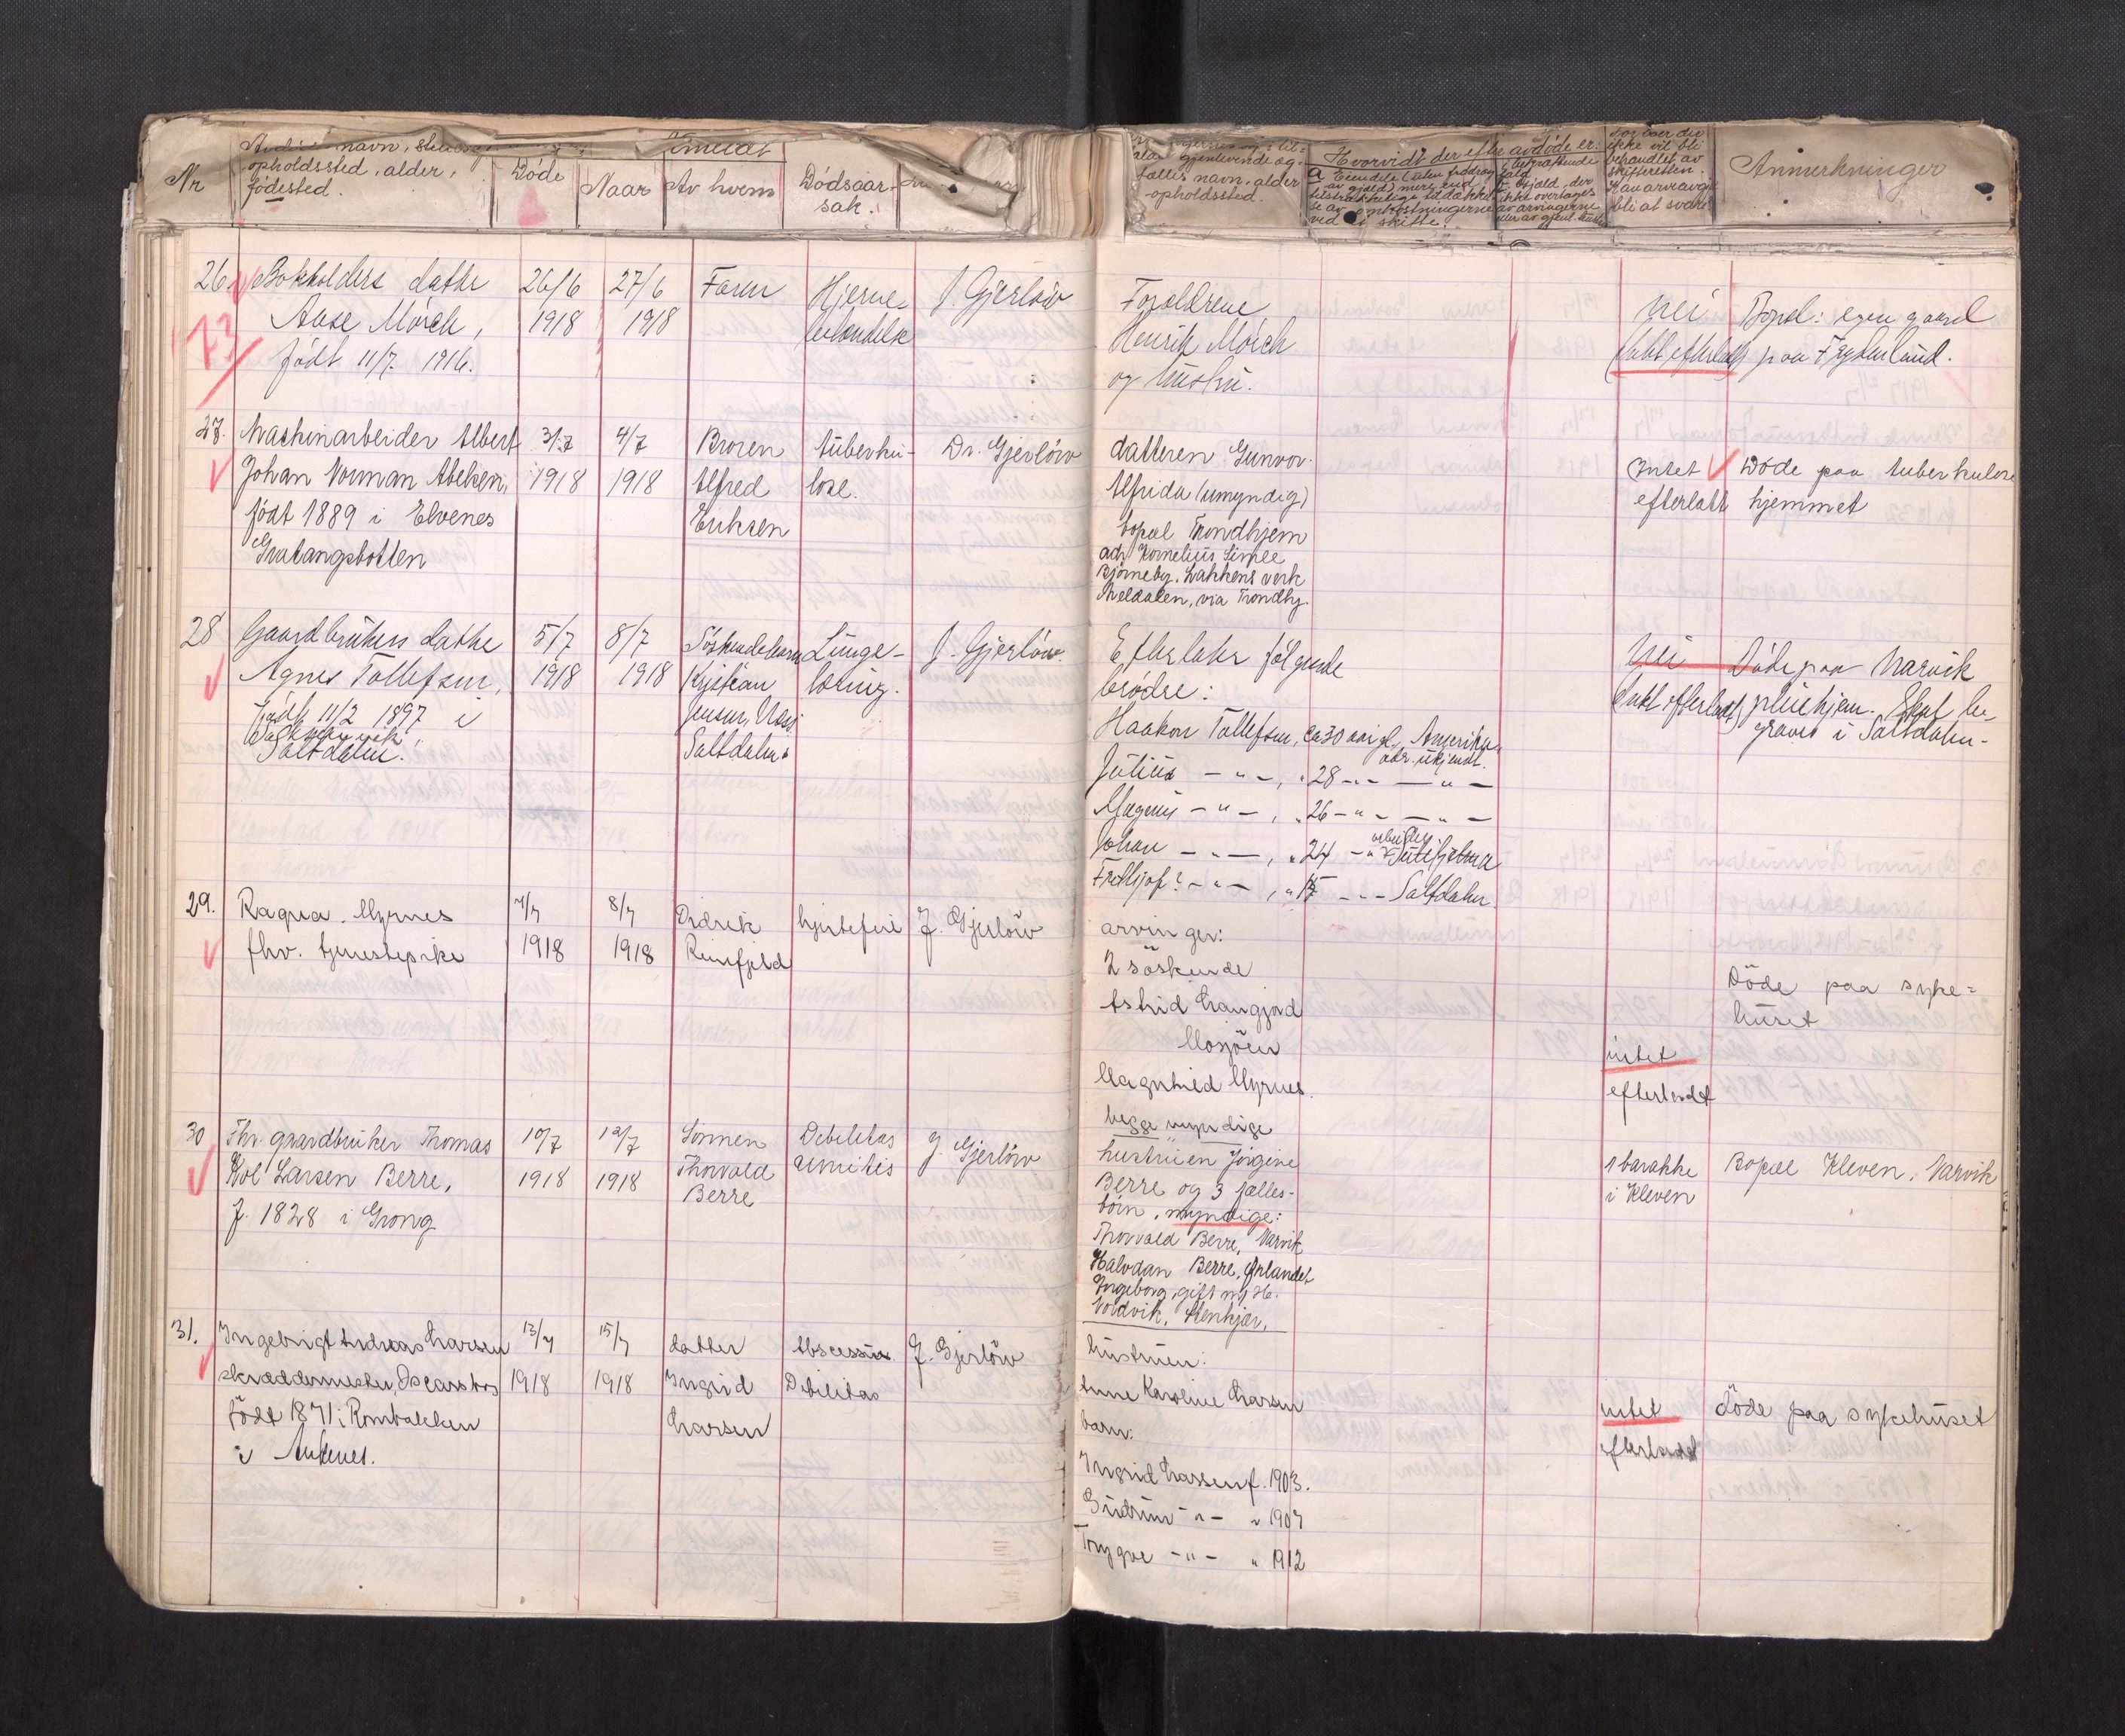 Nr
navn,
opholdssted, alder,
fødested.
Døde
Anmeldt
Naar
Av hvem
Dødsaar-
sak.
gjenlevende æg-
tefælles navn, alder
-opholdssted.
Hvorvidt der efter avdøde er:
ikke vil bli
behandlet av
skifteretten.
bli at svare
Anmerkninger
26.
Bokholders datter
Aase Mörch,
født 11/7 1916.
26/6
1918
27/6
1918
Faren
Hjerne
betændelse
J. Gjerløw
Forældrene
Henrik Mörch
og hustru.
nei
Intet efterladt
Bopæl: egen gaard
paa Frydenlund.
27.
Maskinarbeider Albert
Johan Norman Abelsen,
født 1889 i Elvenes
Gratangsbotten
3/7
1918
4/7
1918
Broren
Alfred
Eriksen
tuberku-
lose.
Dr. Gjerløw
datteren Gunvor
Alfrida (umyndig)
bopæl Trondhjem
adr. Kornelius Simle
Bjørneby, Løkkens verk
Meldalen, via Trondhj.
Intet
efterlatt
Døde paa tuberkulose
hjemmet
28
Gaardbrukers datter
Agnes Tollefsen,
født 11/2 1897 i
Saltdalen.
5/7
1918
8/7
1918
Søskendebarn
Kristian
Jensen,
Saltdalen
Lunge-
J. Gjerløw.
Efterlater følgende
brødre:
Haakon Tollefsen, ca 30 aar gl, Amerika
adr. ukjendt.
Julius — " —, " 28 — " — — " —
Magnus — " —, " 26 — " — — " —
Johan — " —, " 24 — " arbeider
Fridtjof? — " —, " 15 — " — Saltdalen
nei
Intet efterladt
Døde paa Narvik
pleiehjem. Skal be-
graves i Saltdalen-
29.
Ragna Myrnes
fhv. tjenestepike
7/7
1918
8/7
1918
Didrik
Reinfjeld
hjertefeil
J. Gjerløw
arvinger:
2 søskende
Astrid Langjord
Mosjøen
Magnhild Myrnes.
begge myndige
intet
efterladt
Døde paa syke=
huset
30
Fhv. gaardbruker Thomas
Kol Larsen Berre,
f. 1828 i Grong
10/7
1918
12/7
1918
Sønnen
Thorvald
Berre
Debilitas
senilis
J. Gjerløw
hustruen Jørgine
Berre og 3 fælles-
børn, myndige:
Thorvald Berre, Narvik
Halvdan Berre, Ørlandet
Ingeborg, gift m/ H.
Nordvik, Stenkjær.
1 barakke
i Kleven
Bopæl Kleven, Narvik
31.
Ingebrigt Andreas Larsen
skræddermester, Oscarsborg
født 1871 i Rombakken
i Ankenes.
13/7
1918
15/7
1918
datter
Ingrid
Larsen
Abscessus
Debilitas
J. Gjerløw
hustruen:
Anne Karoline Larsen
barn:
Ingrid Larsen f. 1903.
Gudrun — " — " 1907
Trygve — " — " 1912
intet
efterladt
Døde paa sykehuset